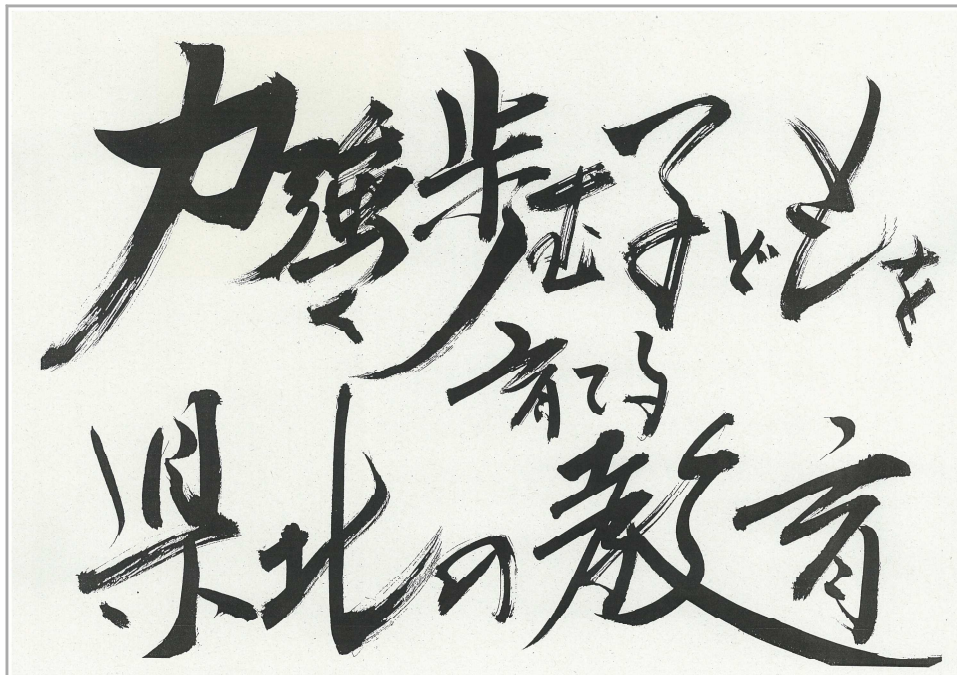 力強く歩む子どもを
育てる
県北の教育